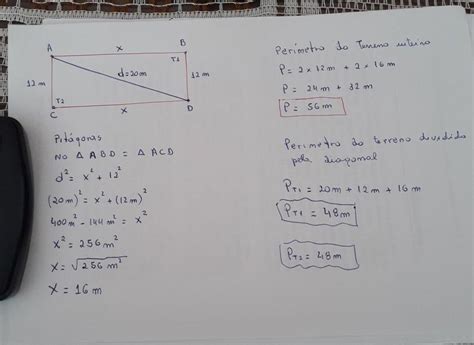 A x B
T1
12 m d=20m 12 m
T2
C x D
Pitágoras
NO △ ABD = △ ACD
d² = x² + 12²
(20m)² = x² + (12m)²
400m² - 144m² = x²
x² = 256 m²
x = √256 m²
x = 16 m
Perímetro do Terreno inteiro
P = 2 x 12m + 2 x 16m
P = 24m + 32m
P = 56m
Perimetro do terreno dividido
pela diagonal
PT1 = 20m + 12m + 16m
PT1 = 48m
PT2 = 48m